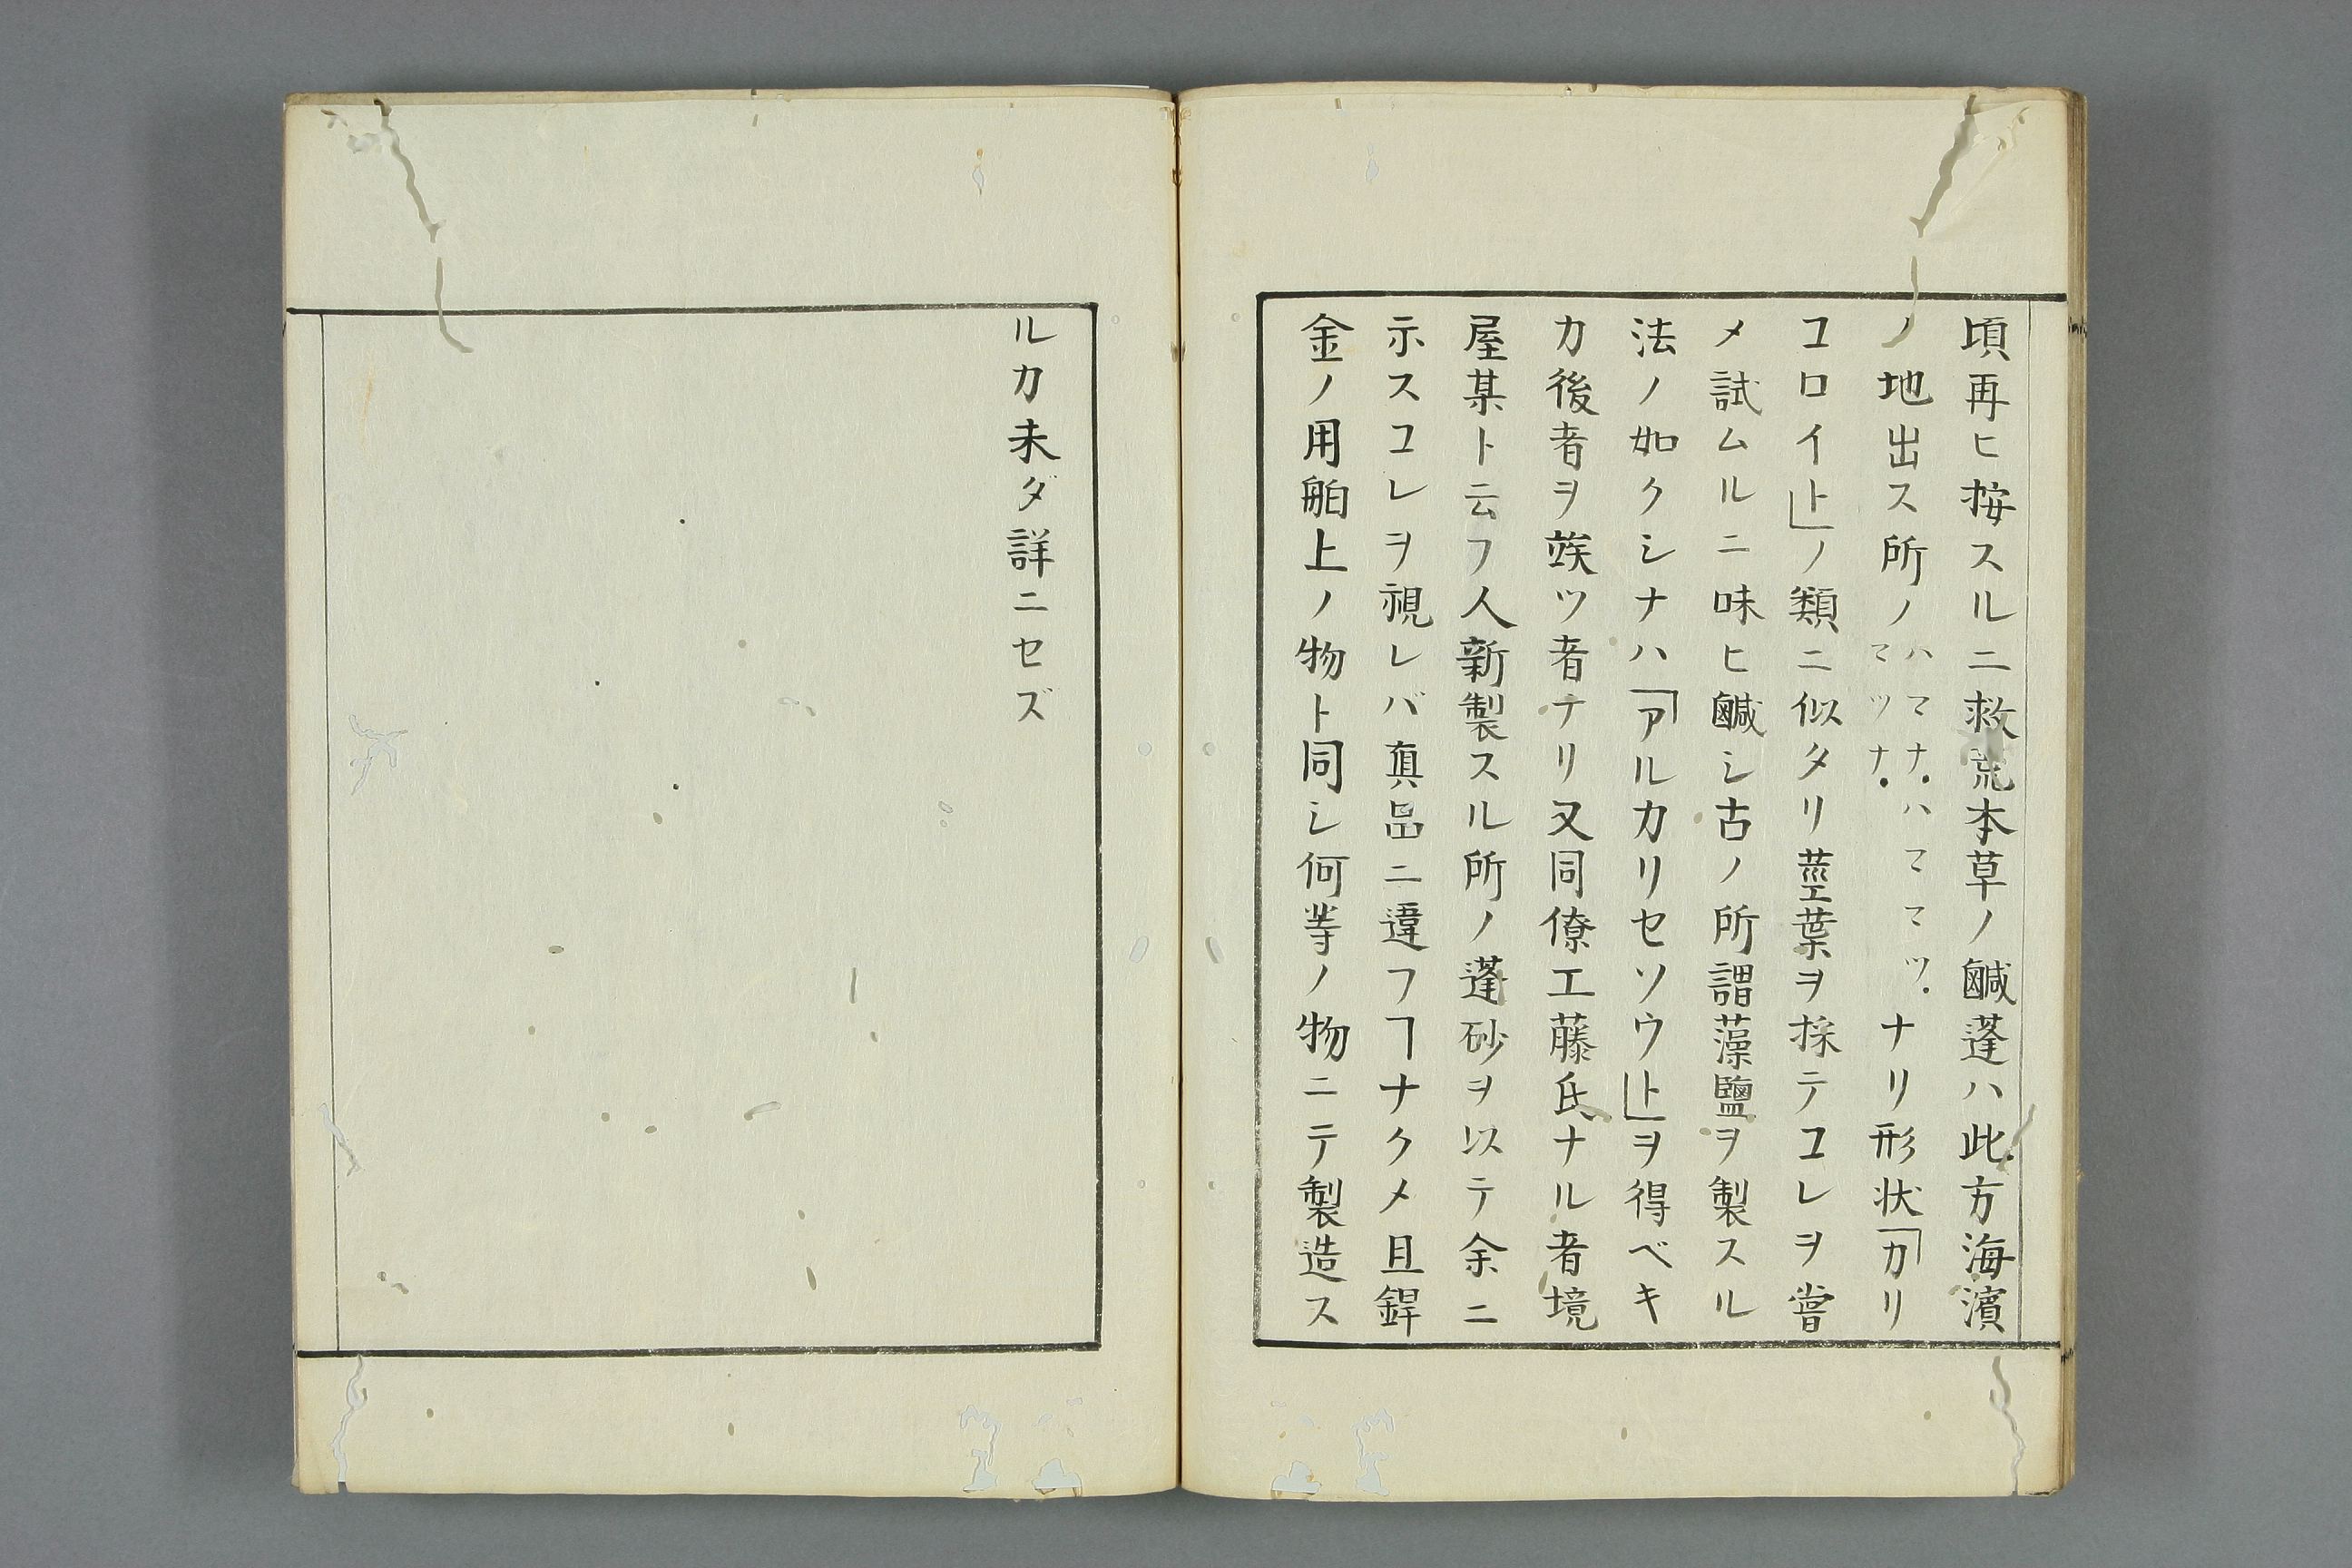 頃再ヒ按スルニ救荒本草ノ鹹蓬ハ此方海濱
ノ地出ス所ノハマナ.ハママツ.マツナ.ナリ形状「カリ
コロイト」ノ類ニ似タリ莖葉ヲ採テコレヲ嘗
メ試ムルニ味ヒ鹹シ古ノ所謂藻鹽ヲ製スル
法ノ如クシナハ「アルカリセソウト」ヲ得ベキ
カ後者ヲ竢ツ者ナリ又同僚工藤氏ナル者境
屋某ト云フ人新製スル所ノ蓬砂ヲ以テ余ニ
示スコレヲ視レバ真品ニ違フヿナクメ且銲
金ノ用舶上ノ物ト同シ何等ノ物ニテ製造ス
ルカ未ダ詳ニセズ